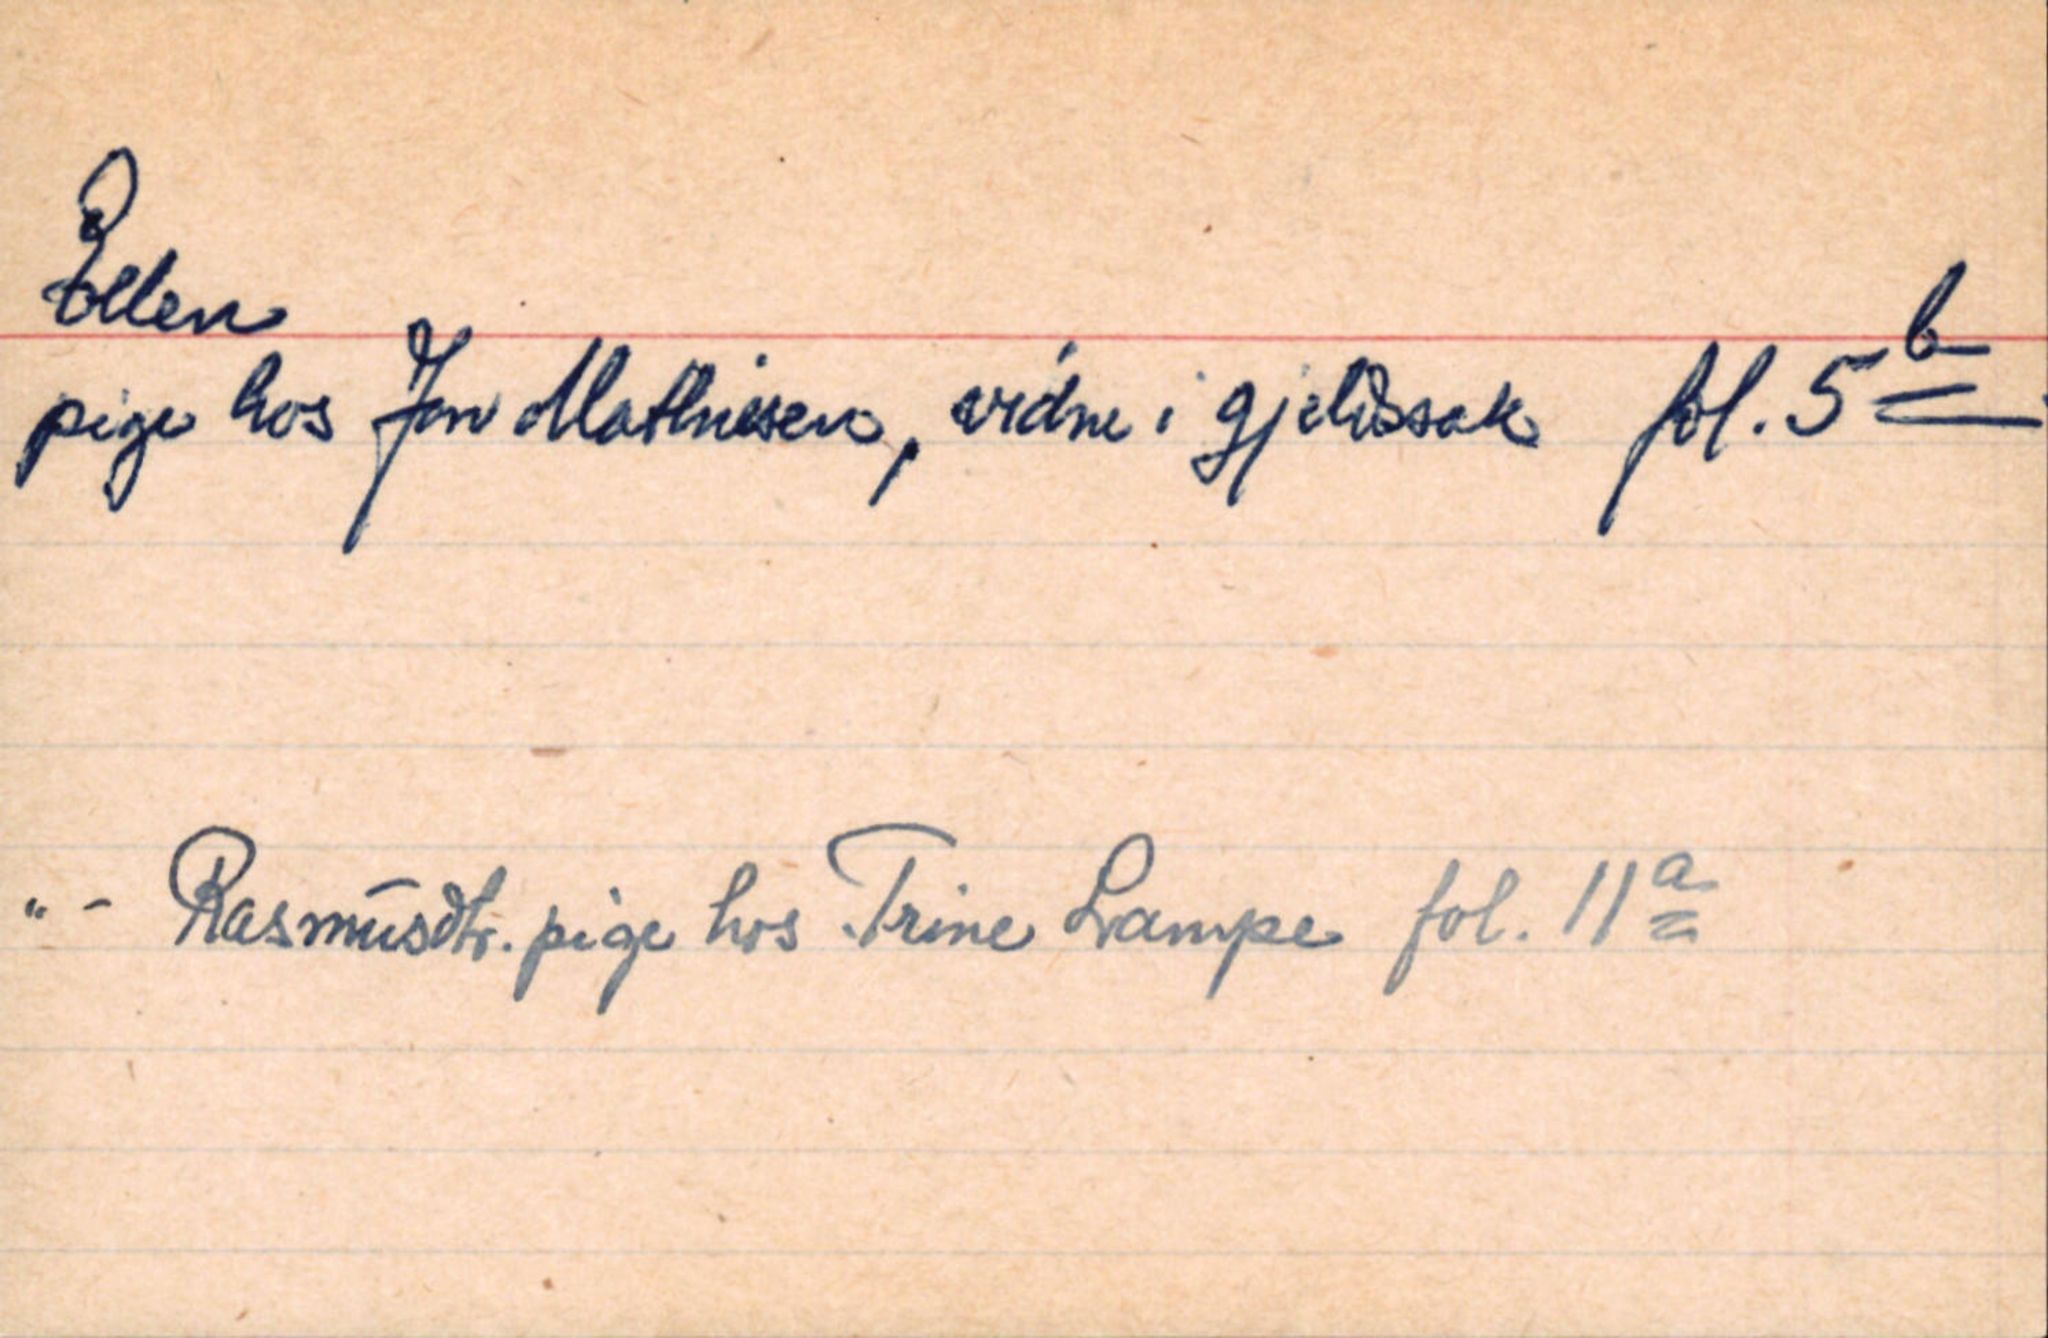 Ellen
pige hos Jon Mathiesen, vidne i gjeldssak fol. 5b
"- Rasmusdtr. pige hos Trine Lampe fol. 11a